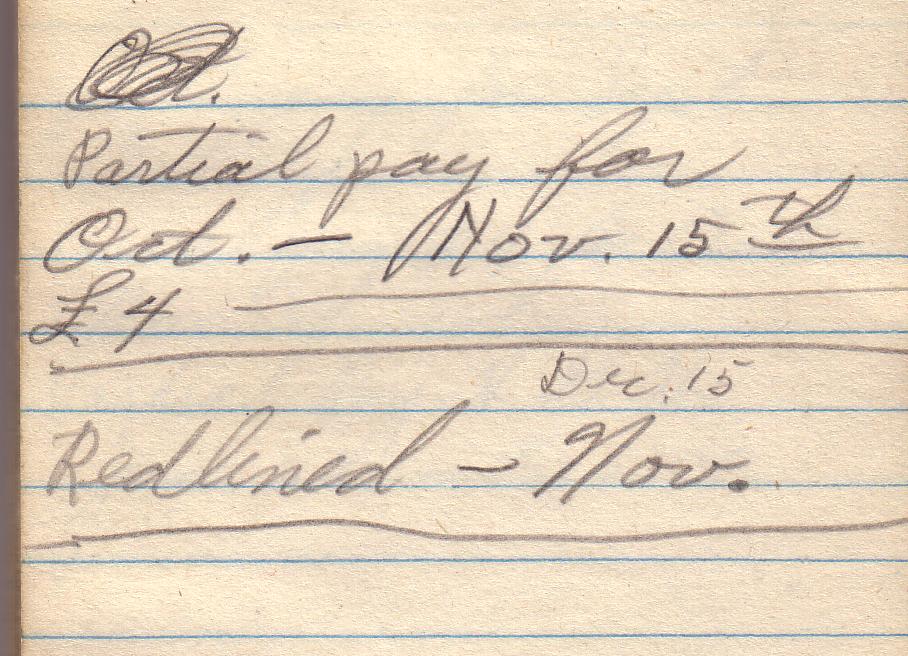 Oct.
Partial pay for
Oct. — Nov. 15th
£4
Dec. 15
Redlined — Nov.